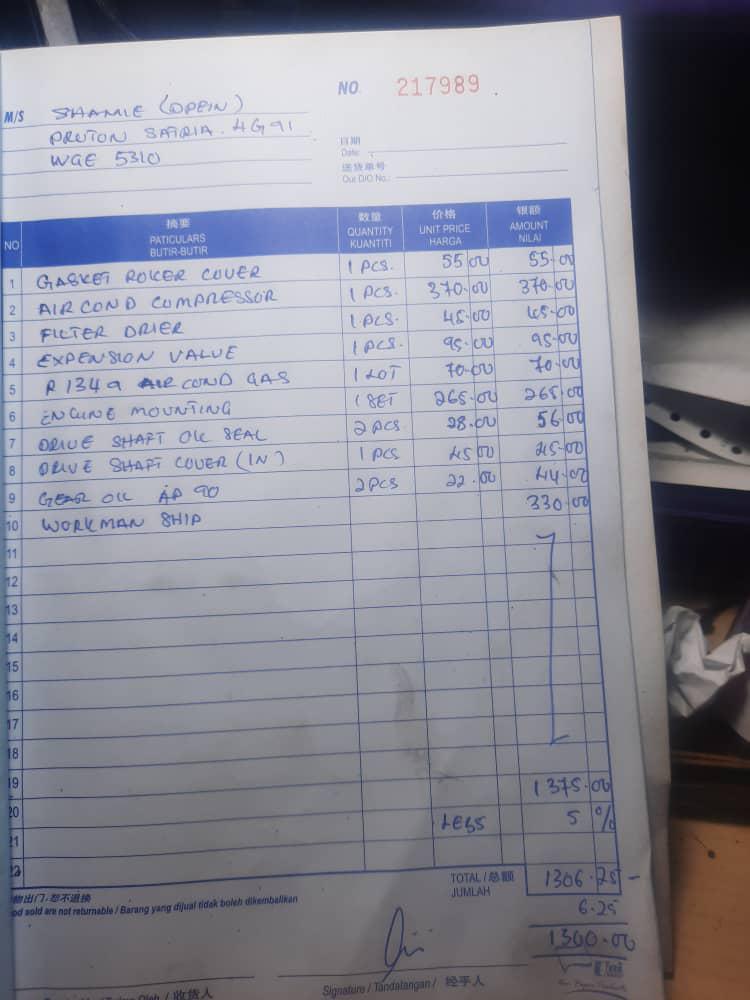 NO. 217989
M/S SHAMIE (OPEIN)
PROTON SATRIA. 4G91
WGE 5310
日期
Date:
送货单号
Our D/O No.:
NO 摘要 PATICULARS BUTIR-BUTIR 数量 QUANTITY KUANTITI 价格 UNIT PRICE HARGA 银额 AMOUNT NILAI
1 GASKET ROKER COVER 1 PCS. 55 00 55-00
2 AIR COND COMPRESSOR 1 PCS. 370-00 370-00
3 FILTER DRIER 1 PCS. 45-00 45-00
4 EXPENSION VALUE 1 PCS. 95-00 95-00
5 R 134 a AIR COND GAS 1 LOT 70-00 70-00
6 ENGINE MOUNTING 1 SET 265-00 265-00
7 DRIVE SHAFT OIL SEAL 2 PCS 28.00 56.00
8 DRIVE SHAFT COVER (IN) 1 PCS 45 00 45-00
9 GEAR OIL AP 90 2 PCS 22.00 44-00
10 WORKMAN SHIP 330-00
11
12
13
14
15
16
17
18
19 1375-00
20 LESS 5 %
21
22
TOTAL / 总额 1306.25-
JUMLAH
物出门.恕不退换
od sold are not returnable / Barang yang dijual tidak boleh dikembalikan
6.25
1300.00
/ 收货人
Signature / Tandatangan / 经手人